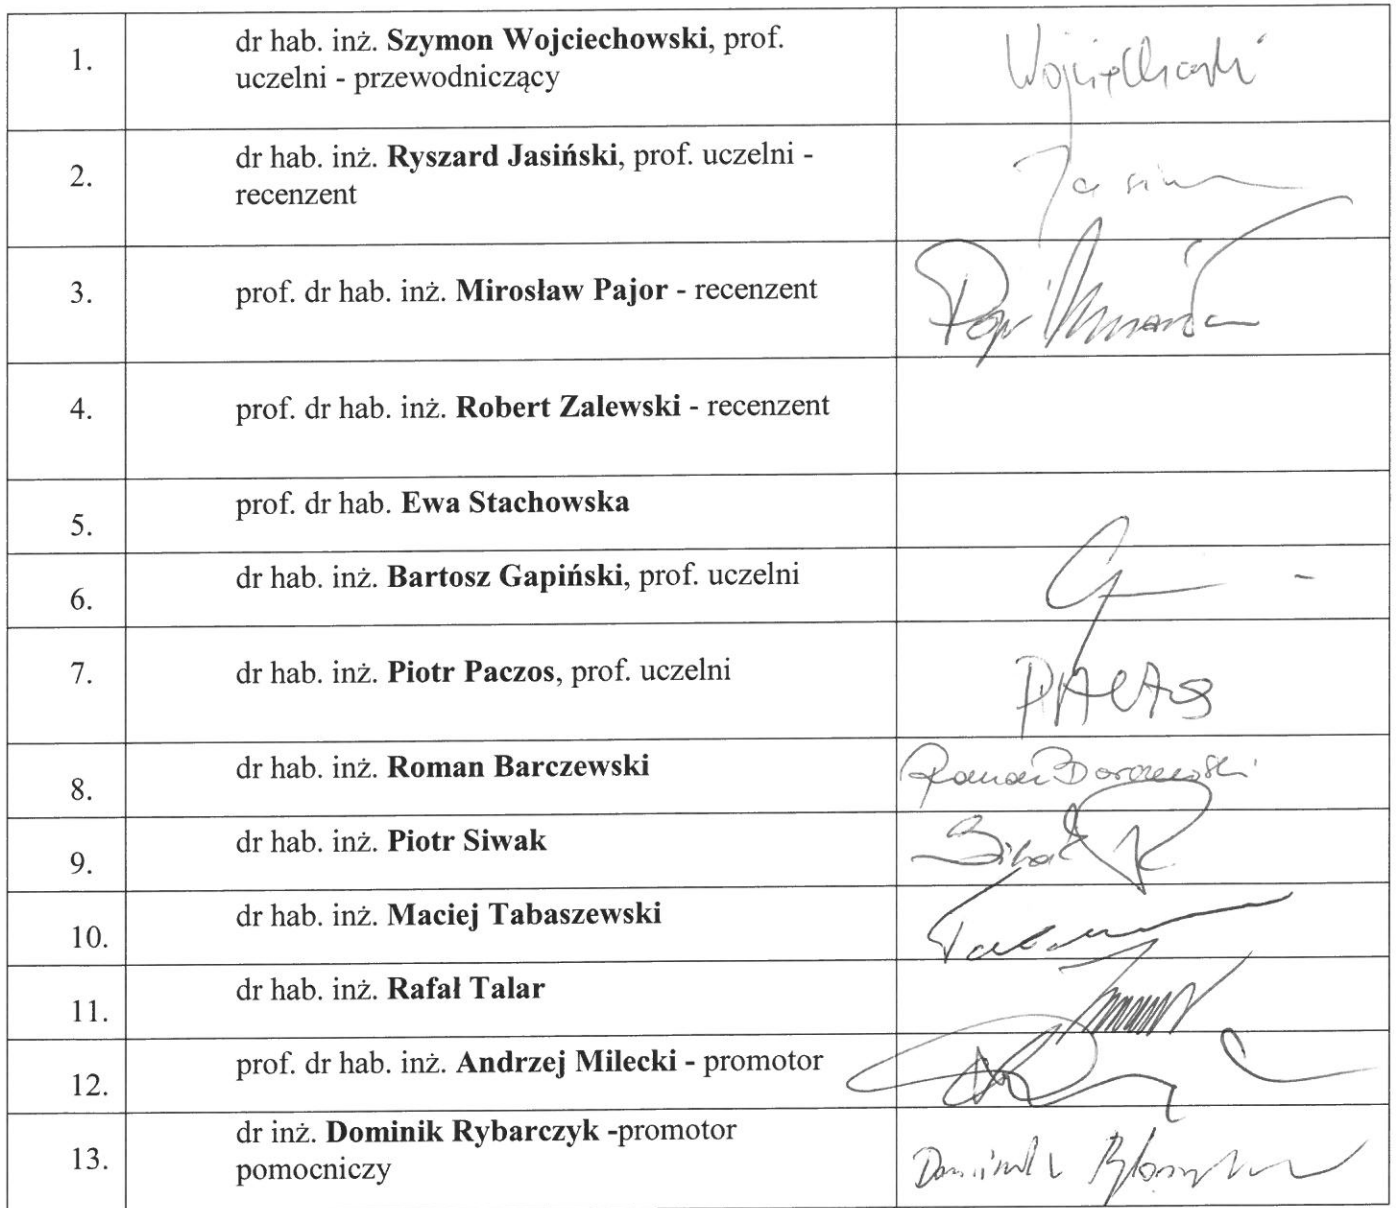 1. dr hab. inż. Szymon Wojciechowski, prof.
uczelni - przewodniczący
Wojciechowski
2. dr hab. inż. Ryszard Jasiński, prof. uczelni -
recenzent
3. prof. dr hab. inż. Mirosław Pajor - recenzent
4. prof. dr hab. inż. Robert Zalewski - recenzent
5. prof. dr hab. Ewa Stachowska
6. dr hab. inż. Bartosz Gapiński, prof. uczelni
7. dr hab. inż. Piotr Paczos, prof. uczelni
8. dr hab. inż. Roman Barczewski
Roman Barczewski
9. dr hab. inż. Piotr Siwak
10. dr hab. inż. Maciej Tabaszewski
11. dr hab. inż. Rafał Talar
12. prof. dr hab. inż. Andrzej Milecki - promotor
13. dr inż. Dominik Rybarczyk -promotor
pomocniczy
Dominik Rybarczyk